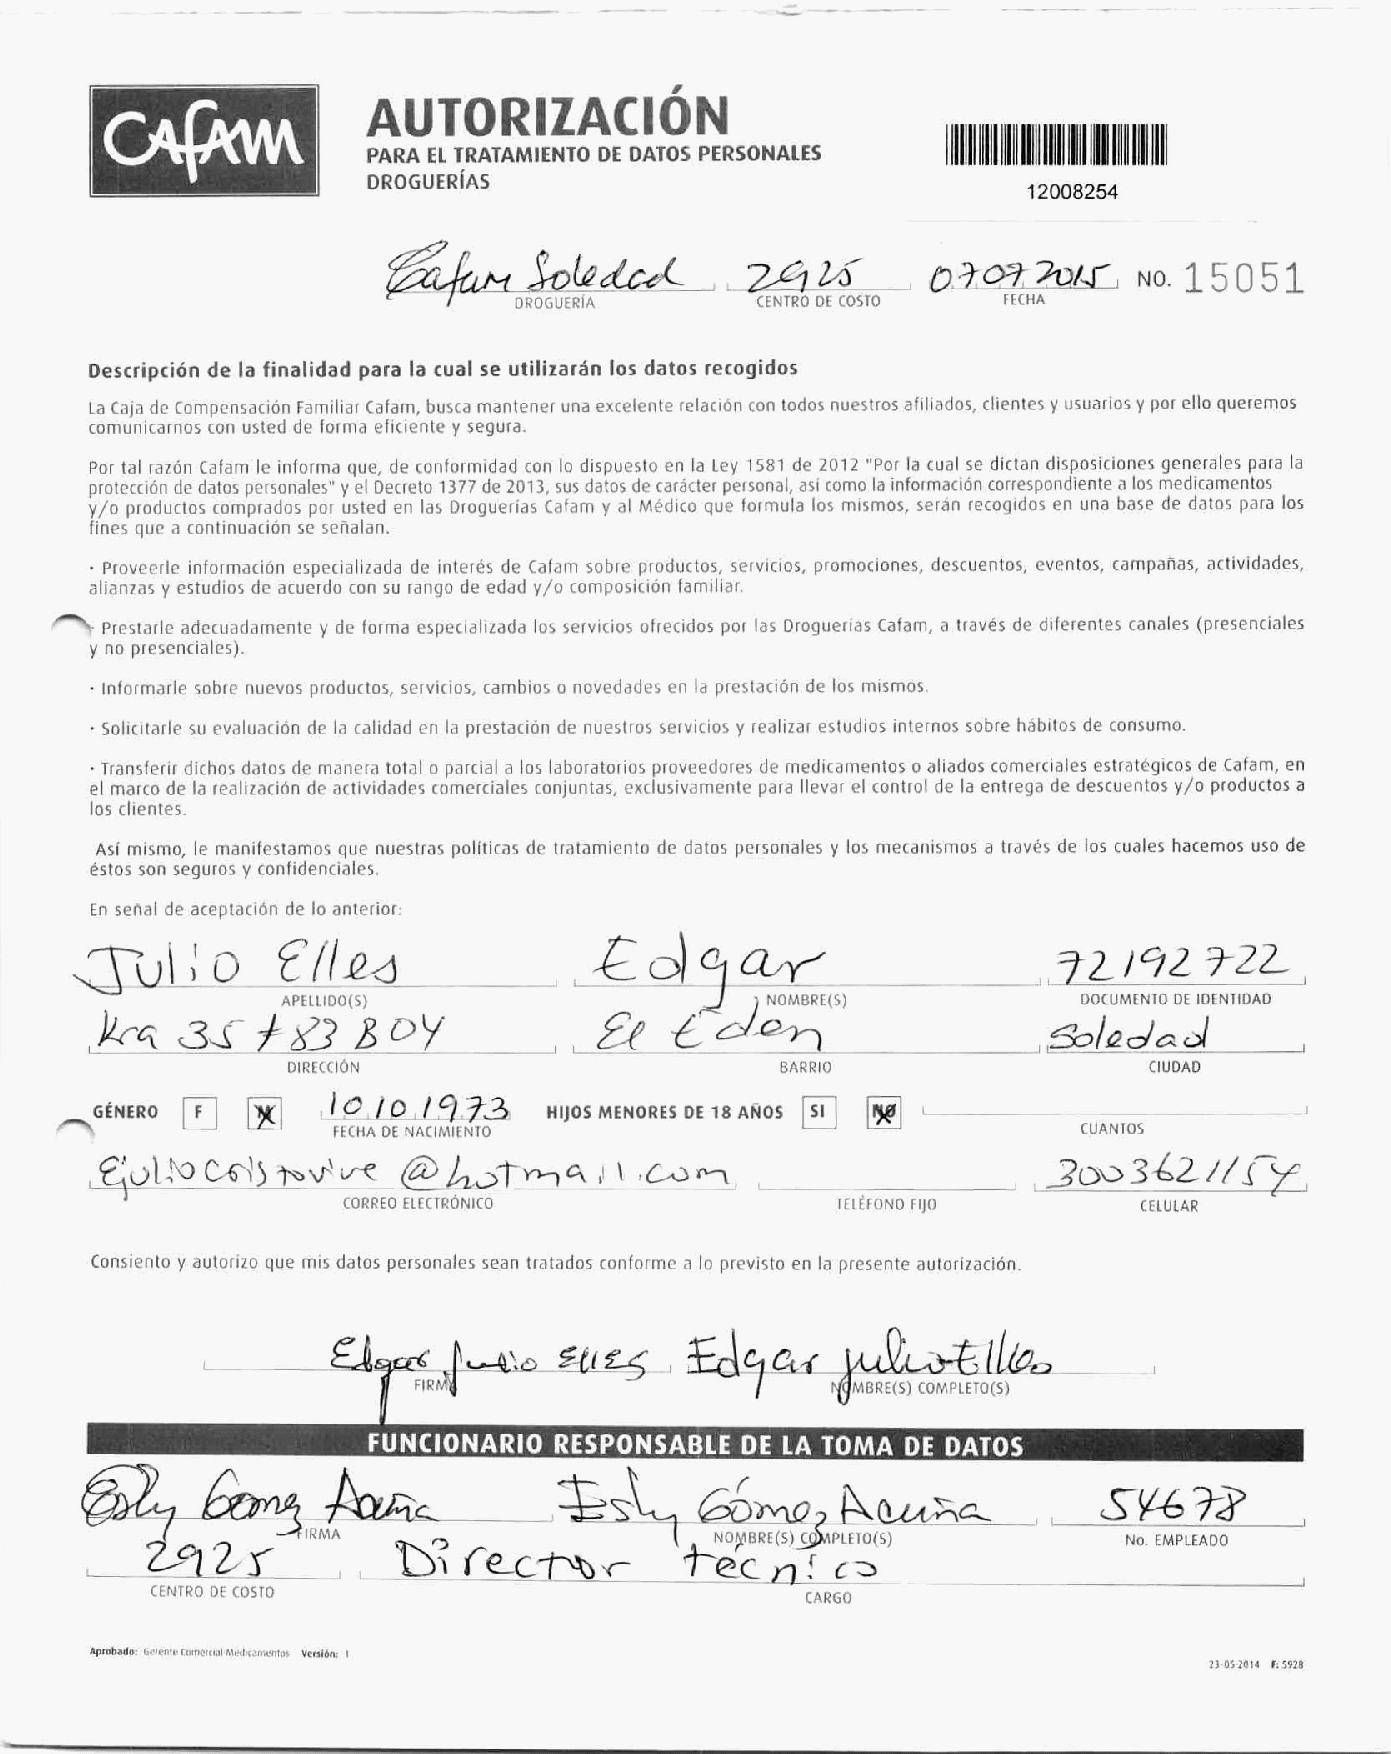 CAFAM
AUTORIZACIÓN
PARA EL TRATAMIENTO DE DATOS PERSONALES
DROGUERÍAS
12008254
Cafam Soledad 2925 07.07.2015 NO. 15051
DROGUERÍA CENTRO DE COSTO FECHA
Descripción de la finalidad para la cual se utilizarán los datos recogidos
La Caja de Compensación Familiar Cafam, busca mantener una excelente relación con todos nuestros afiliados, clientes y usuarios y por ello queremos
comunicarnos con usted de forma eficiente y segura.
Por tal razón Cafam le informa que, de conformidad con lo dispuesto en la Ley 1581 de 2012 "Por la cual se dictan disposiciones generales para la
protección de datos personales" y el Decreto 1377 de 2013, sus datos de carácter personal, así como la información correspondiente a los medicamentos
y/o productos comprados por usted en las Droguerías Cafam y al Médico que formula los mismos, serán recogidos en una base de datos para los
fines que a continuación se señalan.
· Proveerle información especializada de interés de Cafam sobre productos, servicios, promociones, descuentos, eventos, campañas, actividades,
alianzas y estudios de acuerdo con su rango de edad y/o composición familiar.
· Prestarle adecuadamente y de forma especializada los servicios ofrecidos por las Droguerías Cafam, a través de diferentes canales (presenciales
y no presenciales).
· Informarle sobre nuevos productos, servicios, cambios o novedades en la prestación de los mismos.
· Solicitarle su evaluación de la calidad en la prestación de nuestros servicios y realizar estudios internos sobre hábitos de consumo.
· Transferir dichos datos de manera total o parcial a los laboratorios proveedores de medicamentos o aliados comerciales estratégicos de Cafam, en
el marco de la realización de actividades comerciales conjuntas, exclusivamente para llevar el control de la entrega de descuentos y/o productos a
los clientes.
Así mismo, le manifestamos que nuestras políticas de tratamiento de datos personales y los mecanismos a través de los cuales hacemos uso de
éstos son seguros y confidenciales.
En señal de aceptación de lo anterior:
Julio Elles Edgar 72192722
APELLIDO(S) NOMBRE(S) DOCUMENTO DE IDENTIDAD
Kra 35 # 83 B 04 El Eden Soledad
DIRECCIÓN BARRIO CIUDAD
GÉNERO F M 10.10.1973 HIJOS MENORES DE 18 AÑOS SI NO
FECHA DE NACIMIENTO CUANTOS
Ejuliocristovive@hotmail.com 3003621154
CORREO ELECTRÓNICO TELÉFONO FIJO CELULAR
Consiento y autorizo que mis datos personales sean tratados conforme a lo previsto en la presente autorización.
Edgar Julio Elles Edgar julio Elles
FIRMA NOMBRE(S) COMPLETO(S)
FUNCIONARIO RESPONSABLE DE LA TOMA DE DATOS
Esly Gomez Acuña Esly Gómez Acuña 54678
FIRMA NOMBRE(S) COMPLETO(S) No. EMPLEADO
2925 Director técnico
CENTRO DE COSTO CARGO
Aprobado: Gerente Comercial Medicamentos Versión: 1
23-05-2014 F: 5928